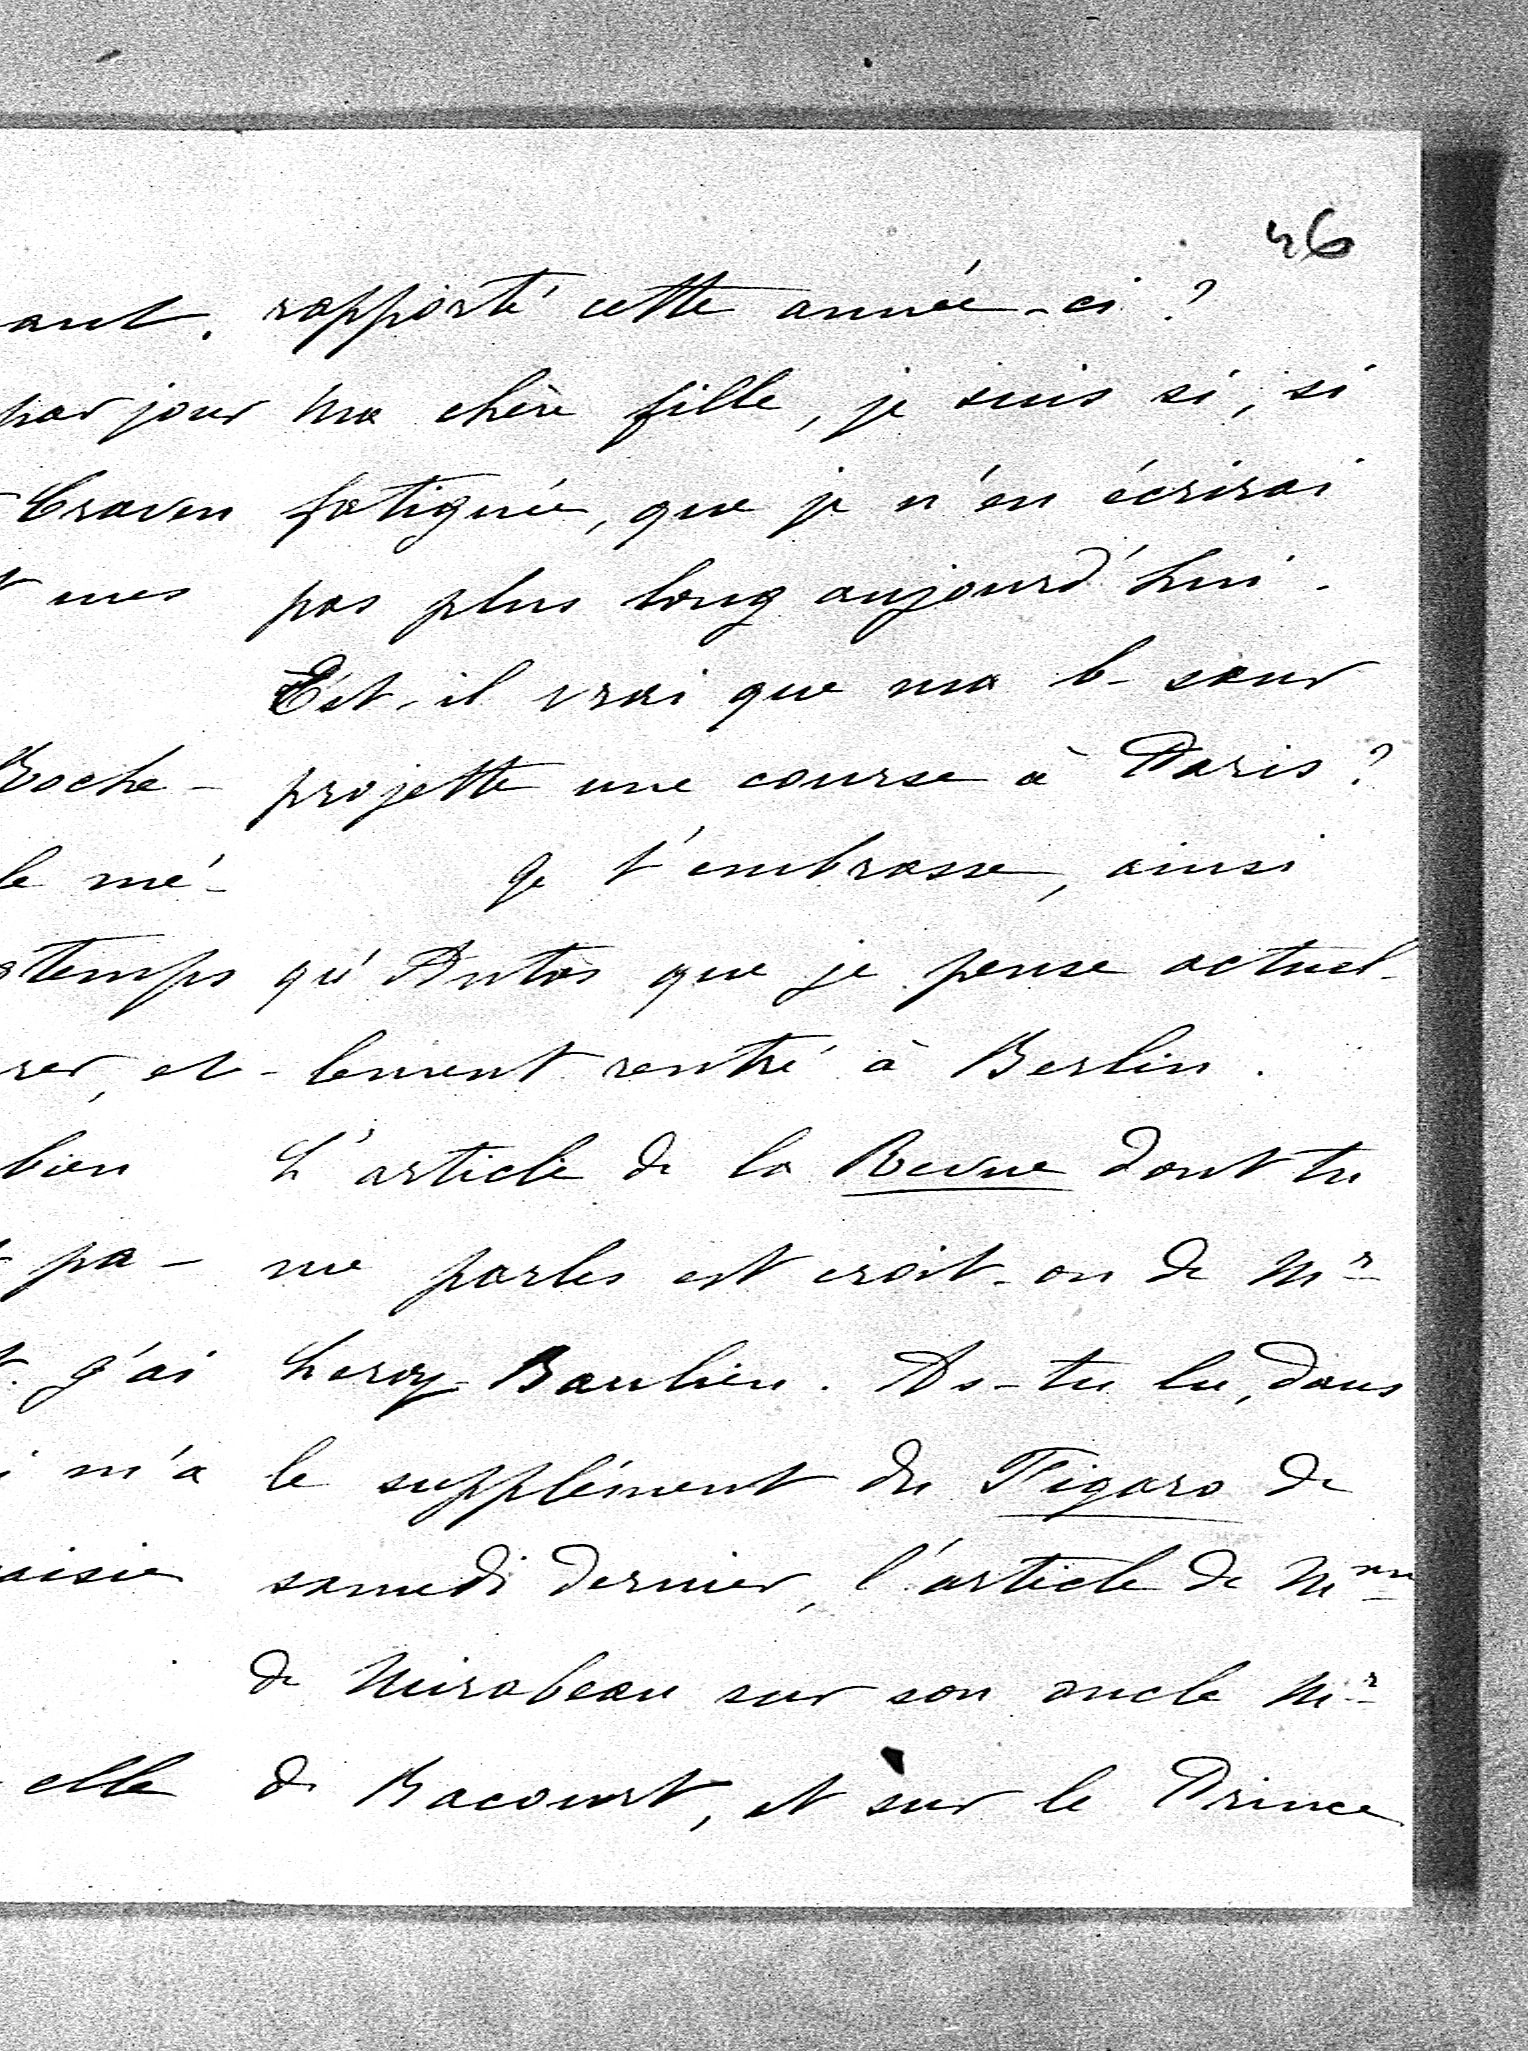 46
rapporté cette année-ci ?
Ma chère fille, je suis si, si
fatiguée, que je n'en écrirai
pas plus long aujourd'hui.
Est-il vrai que ma b-sœur
projette une course à Paris ?
Je t'embrasse, ainsi
qu'Antos que je pense actuel-
-lement rentré à Berlin.
L'article de la Revue dont tu
me parles est croit-on de Mr
Leroy-Baulieu. As-tu lu, dans
le supplément du Figaro de
samedi dernier, l'article de Mme
de Mirabeau sur son oncle Mr
de Bacourt, et sur le Prince
ant.
par jour
Craven
mes
Roche-
le mé-
temps
rer, et
bien
pa-
j'ai
m'a
aisie
elle